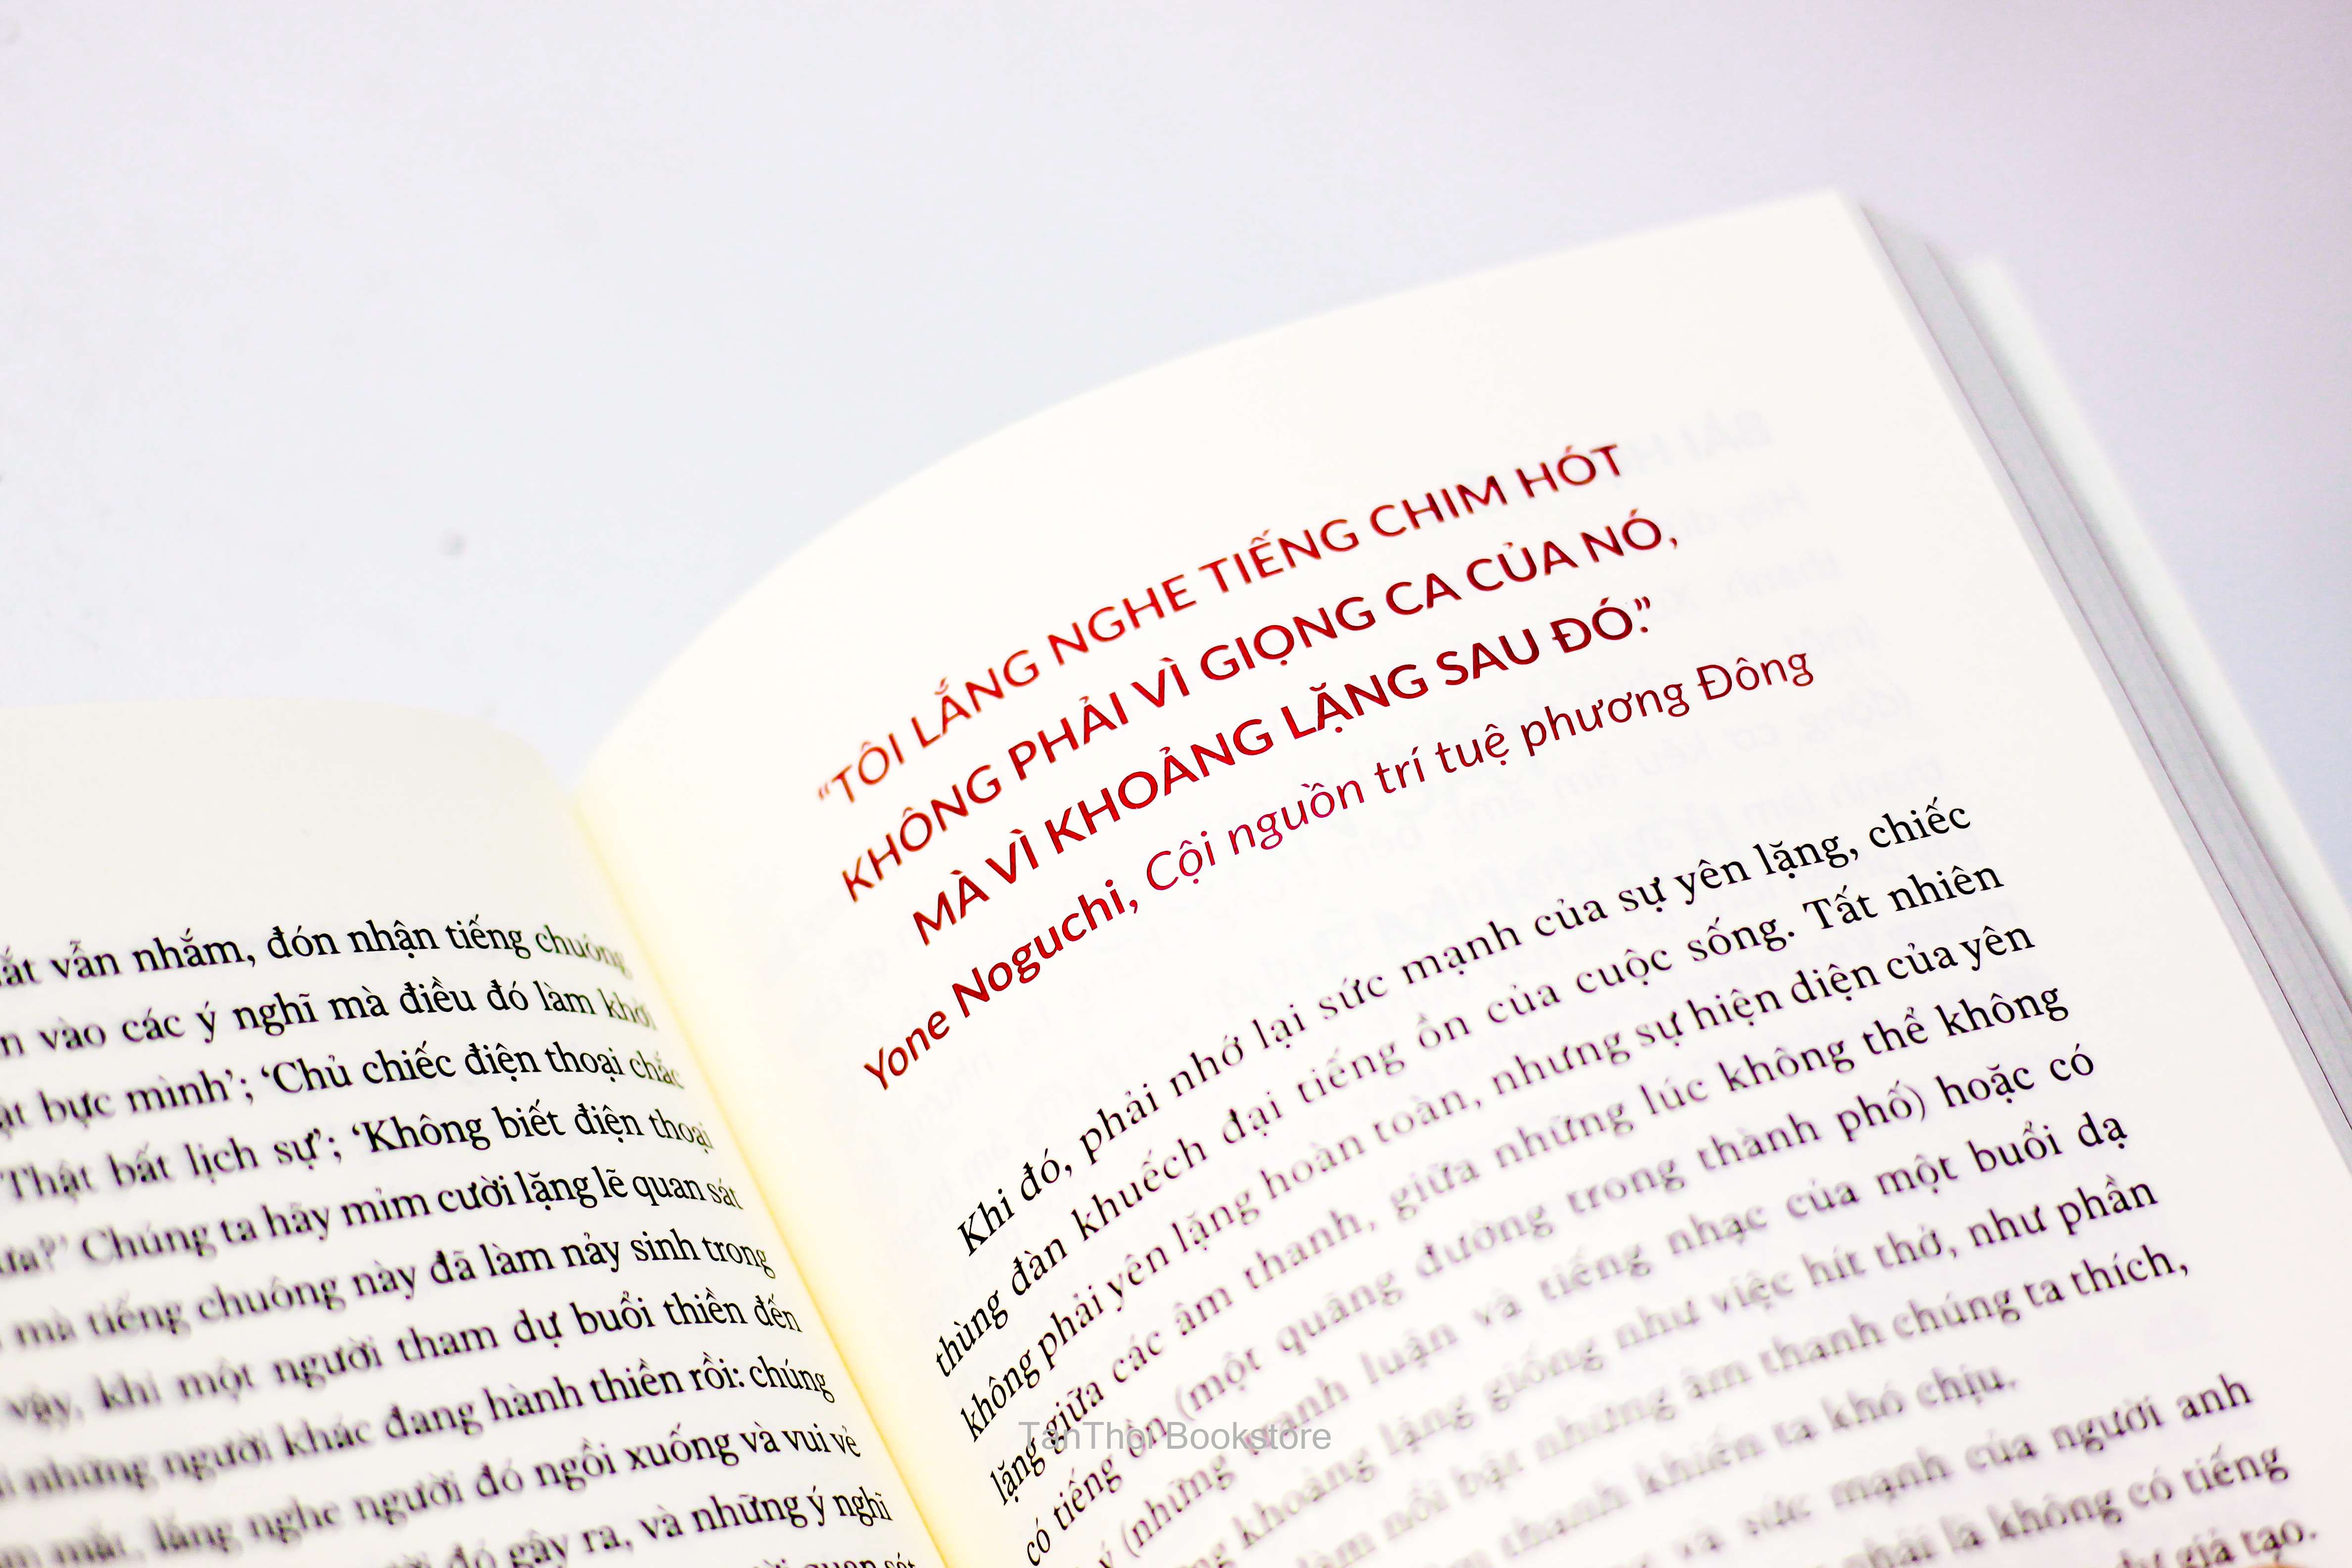 ắt vẫn nhắm, đón nhận tiếng chuông
vào các ý nghĩ mà điều đó làm khởi
bực mình’; ‘Chủ chiếc điện thoại chắc
‘Thật bất lịch sự’; ‘Không biết điện thoại
Chúng ta hãy mỉm cười lặng lẽ quan sát
mà tiếng chuông này đã làm nảy sinh trong
vậy, khi một người tham dự buổi thiền đến
những người khác đang hành thiền rồi: chúng
mắt, lắng nghe người đó ngồi xuống và vui vẻ
đó gây ra, và những ý nghĩ
quan sát
“TÔI LẮNG NGHE TIẾNG CHIM HÓT
KHÔNG PHẢI VÌ GIỌNG CA CỦA NÓ,
MÀ VÌ KHOẢNG LẶNG SAU ĐÓ.”
Yone Noguchi, Cội nguồn trí tuệ phương Đông
Khi đó, phải nhớ lại sức mạnh của sự yên lặng, chiếc
thùng đàn khuếch đại tiếng ồn của cuộc sống. Tất nhiên
không phải yên lặng hoàn toàn, nhưng sự hiện diện của yên
lặng giữa các âm thanh, giữa những lúc không thể không
có tiếng ồn (một quãng đường trong thành phố) hoặc có
ý (những tranh luận và tiếng nhạc của một buổi dạ
khoảng lặng giống như việc hít thở, như phần
làm nổi bật những âm thanh chúng ta thích,
thanh khiến ta khó chịu.
và sức mạnh của người anh
phải là không có tiếng
dự giả tạo.
TanThoi Bookstore